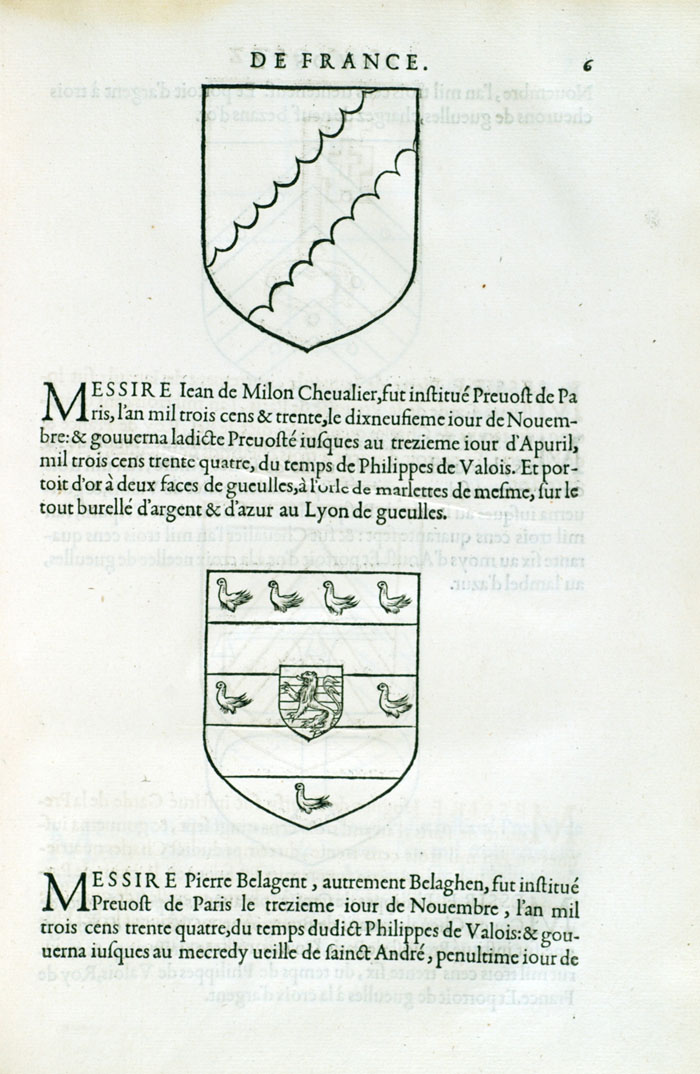 DE FRANCE. 6
MESSIRE Iean de Milon Cheualier, fut inſtitué Preuoſt de Pa
ris, l'an mil trois cens & trente, le dixneufieme iour de Nouem-
bre: & gouuerna ladicte Preuoſté iuſques au trezieme iour d'Apuril,
mil trois cens trente quatre, du temps de Philippes de Valois. Et por-
toit d'or à deux faces de gueulles, à l'orle de marlettes de meſme, ſur le
tout burellé d'argent & d'azur au Lyon de gueulles.
MESSIRE Pierre Belagent, autrement Belaghen, fut inſtitué
Preuoſt de Paris le trezieme iour de Nouembre, l'an mil
trois cens trente quatre, du temps dudict Philippes de Valois: & gou-
uerna iuſques au mecredy ueille de ſainct André, penultime iour de